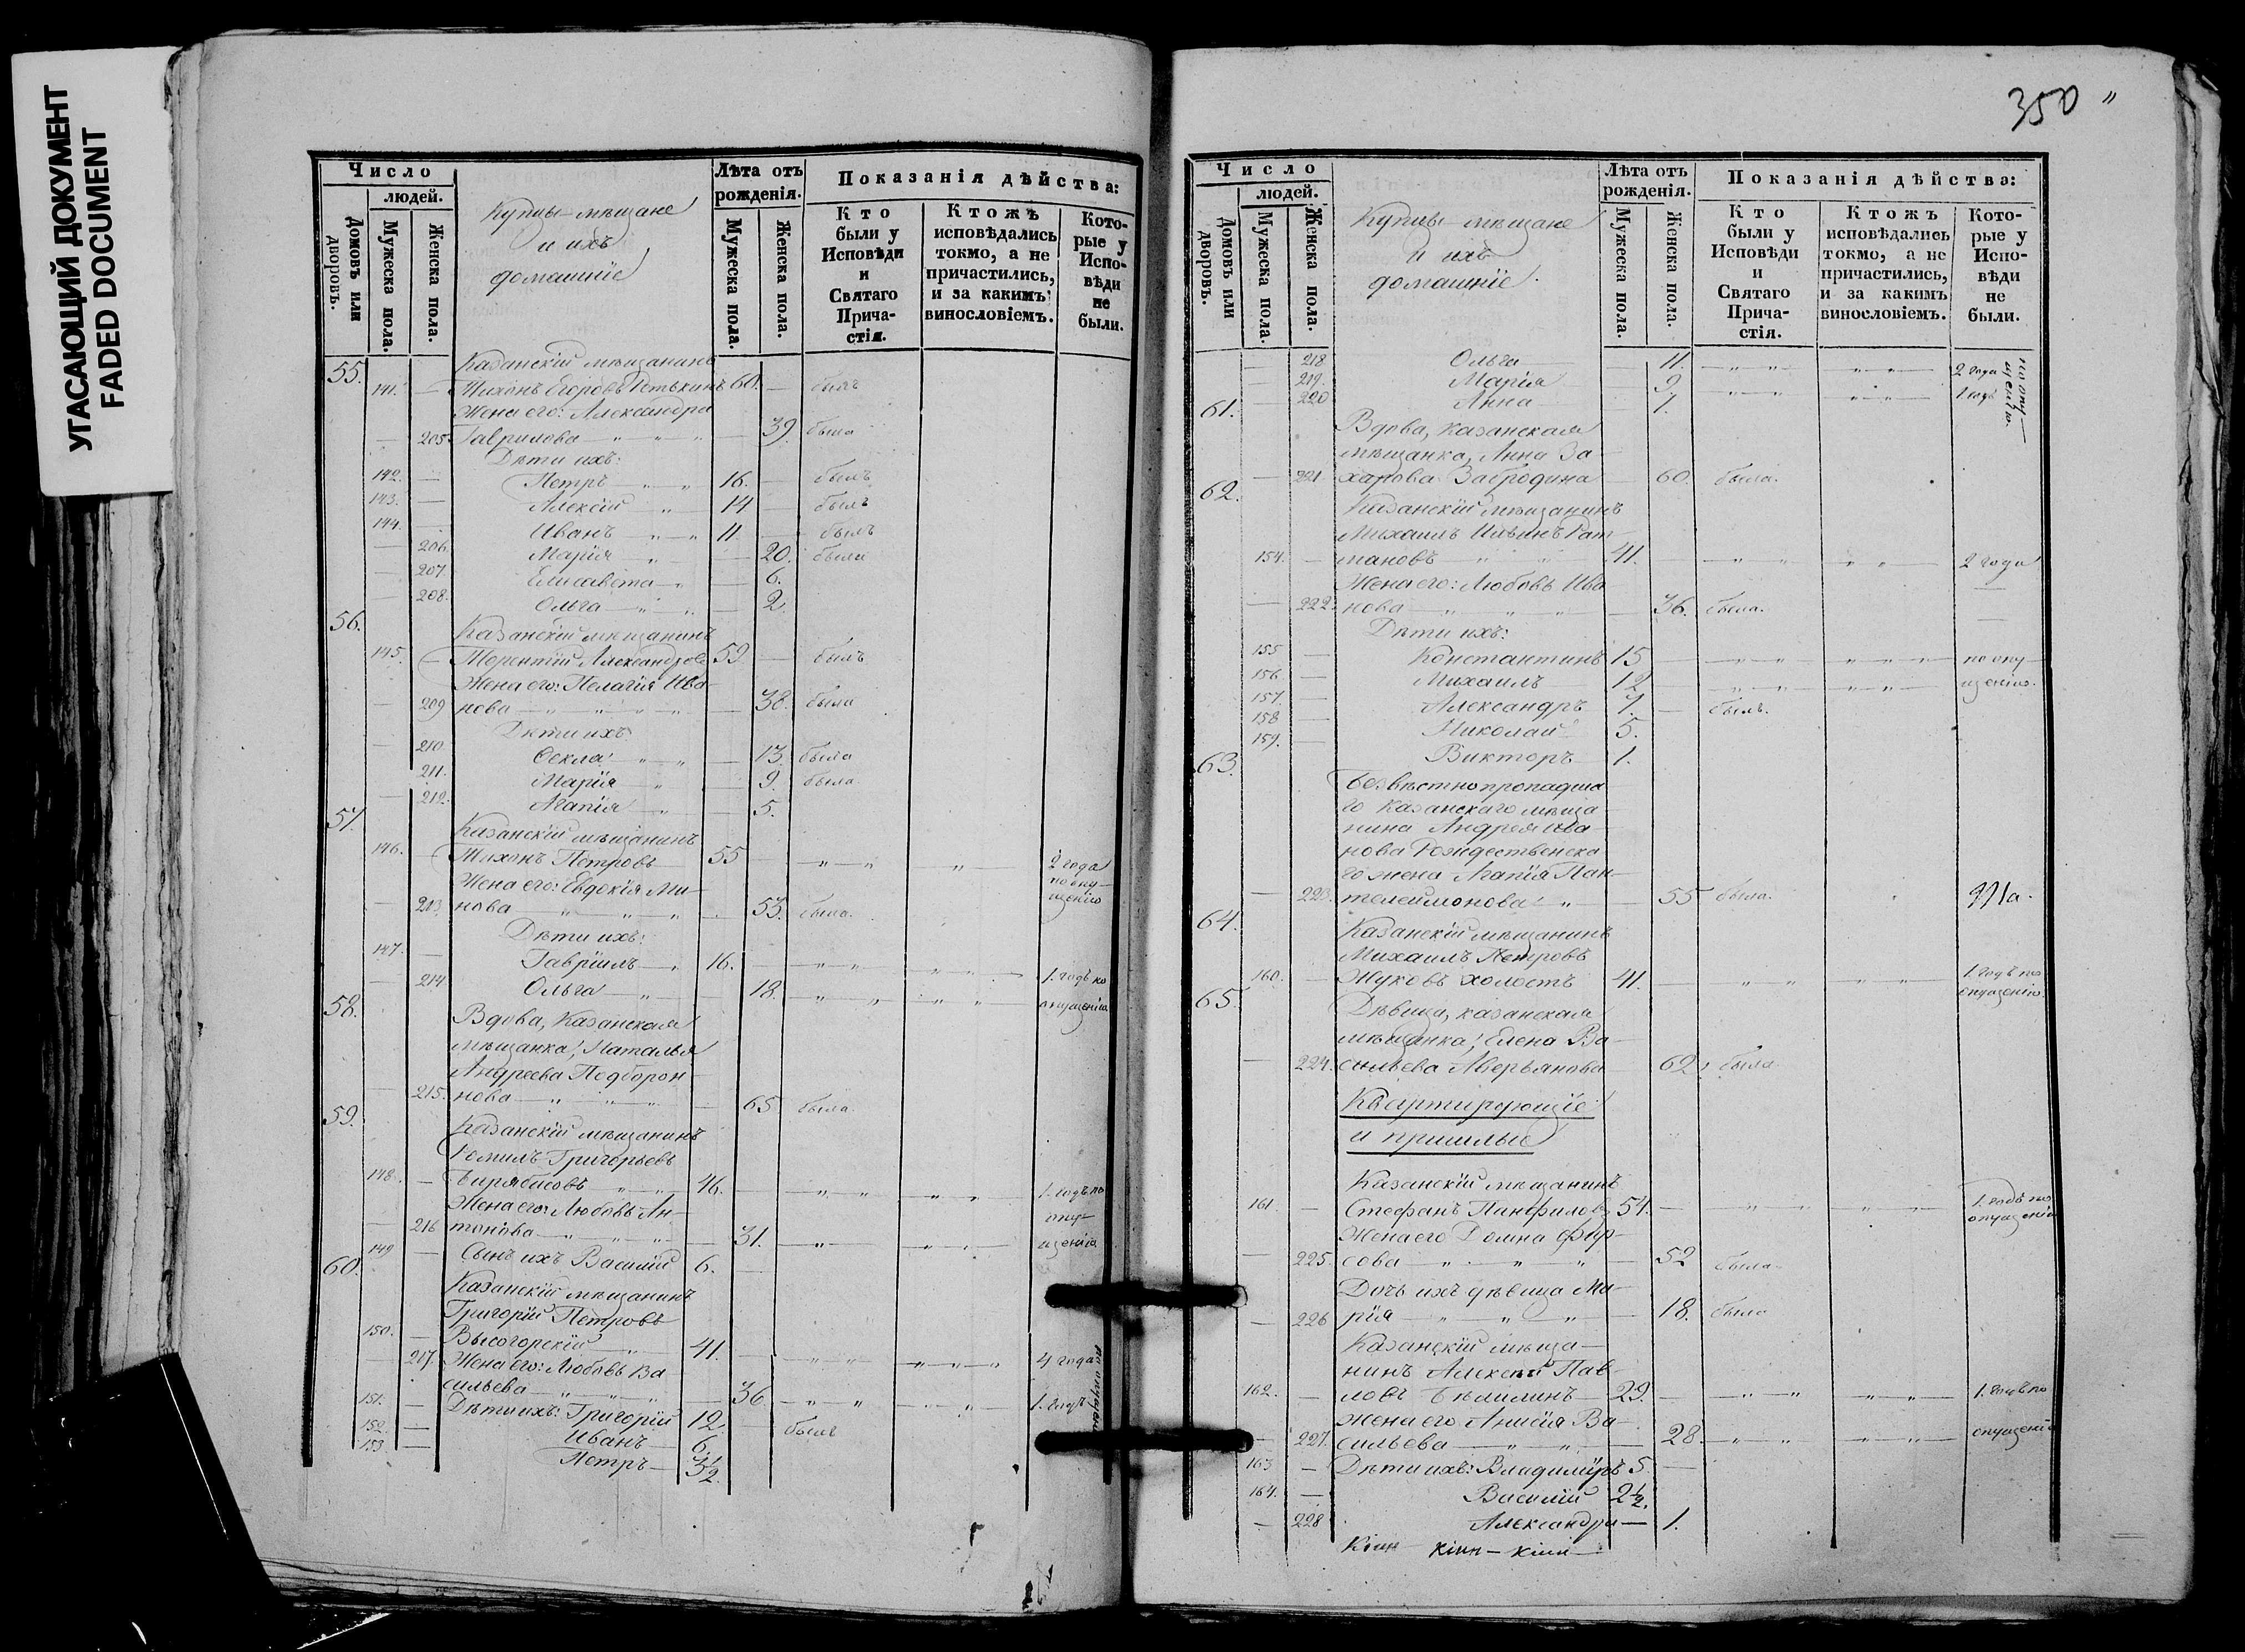 УГАСАЮЩИЙ ДОКУМЕНТ
FADED DOCUMENT
Число
людей.
Домовъ или дворовъ.
Мужеска пола.
Женска пола.
Купцы мѣщане
и ихъ
домашніе
Лѣта отъ рожденія.
Мужеска пола.
Женска пола.
Показанія дѣйства:
Кто были у Исповѣди и Святаго Причастія.
Ктожъ исповѣдались токмо, а не причастились, и за какимъ винословіемъ.
Которые у Исповѣди не были.
55. Казанскій мѣщанинъ
141. — Тихонъ Егоровъ 60. — былъ
Жена его: Александра
— 205. Гаврилова — „ „ „ — 39. была
Дѣти ихъ:
142. — Петръ — „ „ 16. — былъ
143. — Алексій „ 14 — былъ
144. — Иванъ — „ „ 11 — былъ
— 206. Марія „ — 20. была
— 207. Елисавета „ — 6.
— 208. Ольга — „ „ — 2.
56. Казанскій мѣщанинъ
145. — Терентій Александровъ 59 — былъ
Жена его: Пелагія Ива-
— 209 нова — „ „ „ „ — 38. была
Дѣти ихъ:
— 210. Ѳекла „ „ — 13. была
211. Марія „ — 9. была
— 212. Агапія „ — 5.
57. Казанскій мѣщанинъ
146. — Тихонъ Петровъ 55 — „ „ „ 2 года
по опу-
щенію
Жена его: Евдокія Ми-
— 213. нова „ „ „ — 53. была.
Дѣти ихъ:
147. — Гавріилъ — „ 16. — „ „ „ „ 1. годъ по
214 Ольга — „ — 18. — „ „ „ „ опущенію
58. Вдова, Казанская
мѣщанка, Наталья
Андреева Подборон-
— 215. нова — „ „ „ — 65 была.
59. Казанскій мѣщанинъ
Григорьевъ
148. — „ „ 46. — „ „ „ „ 1. годъ по
Жена его: Любовь Ан-
— 216 тонова — „ „ „ — 31. — „ „ „ опу-
щенію
149 — Сынъ ихъ Василій 6. —
60. Казанскій мѣщанинъ
Григорій Петровъ
150. — Высогорскій „ 41. — „ „ „ „ „ 4 года
— 217. Жена его: Любовь Ва-
сильева — „ „ „ — 36 — „ „ „ „ 1. годъ
по опущенію
151. — Дѣти ихъ: Григорій 12. былъ
152. — Иванъ — 6.
153. — Петръ — 3½.
350 „
Число
людей.
Домовъ или дворовъ.
Мужеска пола.
Женска пола.
Купцы мѣщане
и ихъ
домашніе.
Лѣта отъ рожденія.
Мужеска пола.
Женска пола.
Показанія дѣйства:
Кто были у Исповѣди и Святаго Причастія.
Ктожъ исповѣдались токмо, а не причастились, и за какимъ винословіемъ.
Которые у Исповѣди не были.
— 218. Ольга — 11. — „ „ „ „ 2 года
— 219. Марія — 9. — „ „ „ „ 1 годъ
по опу-
щенію.
— 220 Анна — 1.
61. Вдова, казанская
мѣщанка, Анна За-
— 221 харова Забродина — 60. была.
62. Казанскій мѣщанинъ
Михаилъ Ильинъ Рат-
154. — мановъ „ „ 41. — „ „ „ „ 2 года
Жена его: Любовь Ива-
— 222. нова — „ „ „ — 36. была.
Дѣти ихъ:
155 — Константинъ 15 — „ „ „ „ „ по опу-
156. — Михаилъ 12 — „ „ „ „ щенію.
157. — Александръ 7. — былъ.
158 — Николай 5.
159. — Викторъ 1.
63. Безвѣстно пропадша-
го Казанскаго мѣща-
нина Андрея Ива-
нова Рождественска-
го жена Агапія Пан-
— 223. телеимонова „ — 55 была.
64. Казанскій мѣщанинъ
Михаилъ Петровъ
160. — Жуковъ холостъ 41. — „ „ „ „ 1. годъ по
опущенію.
65. Дѣвица, казанская
мѣщанка, Елена Ва-
— 224. сильева Аверьянова 62. была
Квартирующіе
и пришлые
Казанскій мѣщанинъ
161. — Стефанъ Панфиловъ 54. — „ „ „ „ 1. годъ по
опущенію
Жена его Домна Фир-
— 225. сова — „ „ „ — 52 была.
Дочь ихъ дѣвица Ма-
— 226 рія — „ „ „ — 18. была
Казанскій мѣща-
нинъ Алексѣй Пав-
162. — ловъ Бѣлилинъ — 29. — „ „ „ „ 1. годъ по
Жена его Анисія Ва-
— 227. сильева — „ „ — 28. — „ „ „ „ опущенію
163 — Дѣти ихъ: Владиміръ 5. —
164. — Василій 2½.
— 228 Александра — 1.